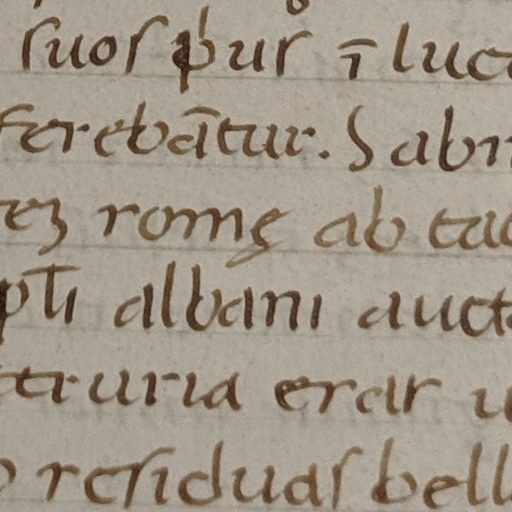 suos p̄ur̄ ī luc
ferebāt̄ur. Sabi
eꝫ romę ab tac
ptī albani auct
etruria erar u
o residuas bell